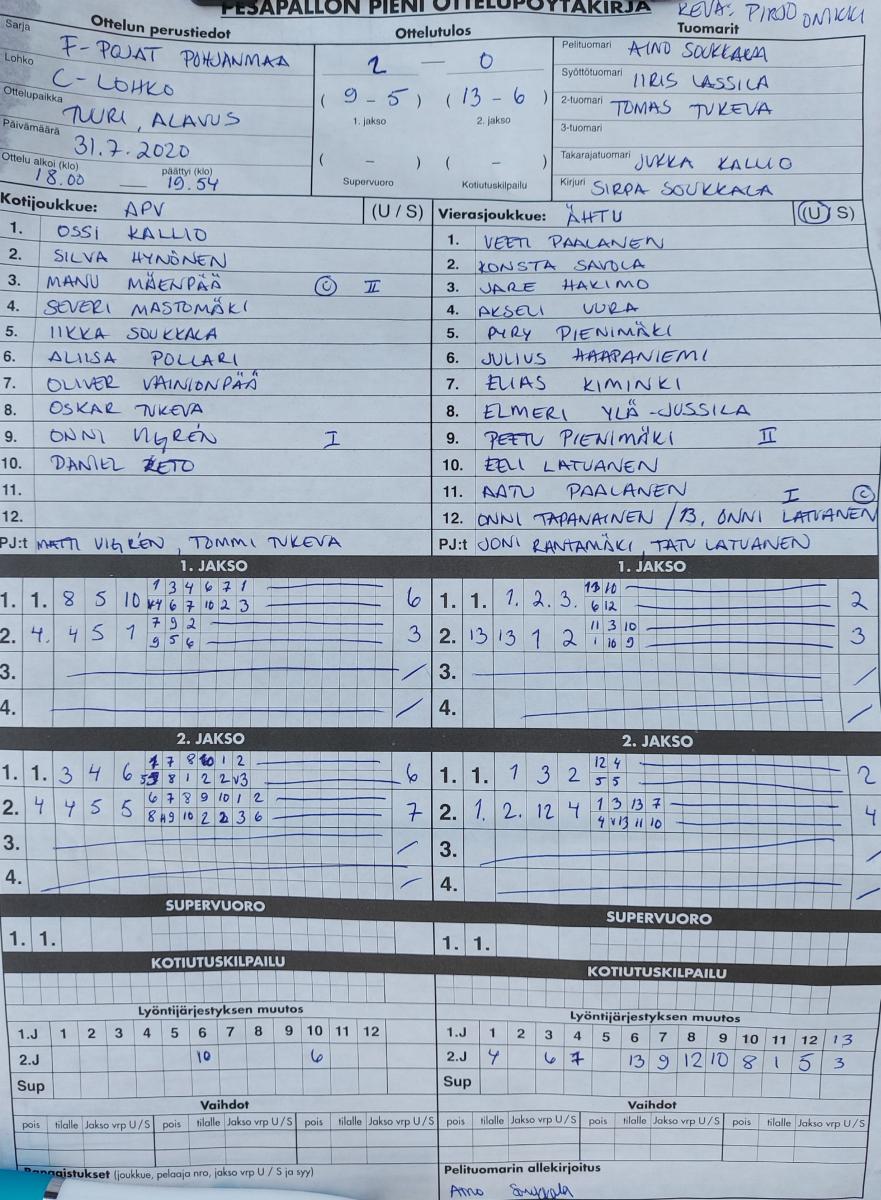 PESÄPALLON PIENI OTTELUPÖYTÄKIRJA
KEVA: PIRJO ONKKI
Ottelun perustiedot
Sarja F-POJAT POHJANMAA
Lohko C-LOHKO
Ottelupaikka TUURI, ALAVUS
Päivämäärä 31.7.2020
Ottelu alkoi (klo) 18.00 — päättyi (klo) 19.54
Ottelutulos
2 — 0
( 9 - 5 ) ( 13 - 6 )
1. jakso 2. jakso
( - ) ( - )
Supervuoro Kotiutuskilpailu
Tuomarit
Pelituomari AINO SOUKKALA
Syöttötuomari IIRIS LASSILA
2-tuomari TOMAS TUKEVA
3-tuomari
Takarajatuomari JUKKA KALLIO
Kirjuri SIRPA SOUKKALA
Kotijoukkue: APV (U / S)
1. OSSI KALLIO
2. SILVA HYNÖNEN
3. MANU MÄENPÄÄ C II
4. SEVERI MASTOMÄKI
5. IIKKA SOUKKALA
6. ALIISA POLLARI
7. OLIVER VAINIONPÄÄ
8. OSKAR TUKEVA
9. ONNI VIGRÉN I
10. DANIEL KETO
11.
12.
PJ:t MATTI VIGRÉN, TOMMI TUKEVA
Vierasjoukkue: ÄHTU (U / S)
1. VEETI PAALANEN
2. KONSTA SAVOLA
3. JARE HAKIMO
4. AKSELI UURA
5. PYRY PIENIMÄKI
6. JULIUS HAAPANIEMI
7. ELIAS KIMINKI
8. ELMERI YLÄ-JUSSILA
9. PEETU PIENIMÄKI II
10. EELI LATVANEN
11. AATU PAALANEN I C
12. ONNI TAPANAINEN /13. ONNI LATVANEN
PJ:t JONI RANTAMÄKI, TATU LATVANEN
1. JAKSO
1. 1. 8 5 10 1 3 4 6 7 1 6
6 7 10 2 3
2. 4. 4 5 1 7 9 2 3
9 5 6
3.
4.
1. JAKSO
1. 1. 1. 2. 3. 13 10 2
6 12
2. 13 13 1 2 11 3 10 3
1 10 9
3.
4.
2. JAKSO
1. 1. 3 4 6 7 8 10 1 2 6
8 1 2 2 v3
2. 4 4 5 5 6 7 8 9 10 1 2 7
8 9 10 2 2 3 6
3.
4.
2. JAKSO
1. 1. 1 3 2 12 4 2
5 5
2. 1. 2. 12 4 1 3 13 7 4
4 v13 11 10
3.
4.
SUPERVUORO
1. 1.
SUPERVUORO
1. 1.
KOTIUTUSKILPAILU
KOTIUTUSKILPAILU
Lyöntijärjestyksen muutos
1.J 1 2 3 4 5 6 7 8 9 10 11 12
2.J 10 6
Sup
Lyöntijärjestyksen muutos
1.J 1 2 3 4 5 6 7 8 9 10 11 12 13
2.J 4 6 7 13 9 12 10 8 1 5 3
Sup
Vaihdot
pois tilalle Jakso vrp U / S pois tilalle Jakso vrp U / S pois tilalle Jakso vrp U / S
Vaihdot
pois tilalle Jakso vrp U / S pois tilalle Jakso vrp U / S pois tilalle Jakso vrp U / S
Rangaistukset (joukkue, pelaaja nro, jakso vrp U / S ja syy)
Pelituomarin allekirjoitus
Aino Soukkala